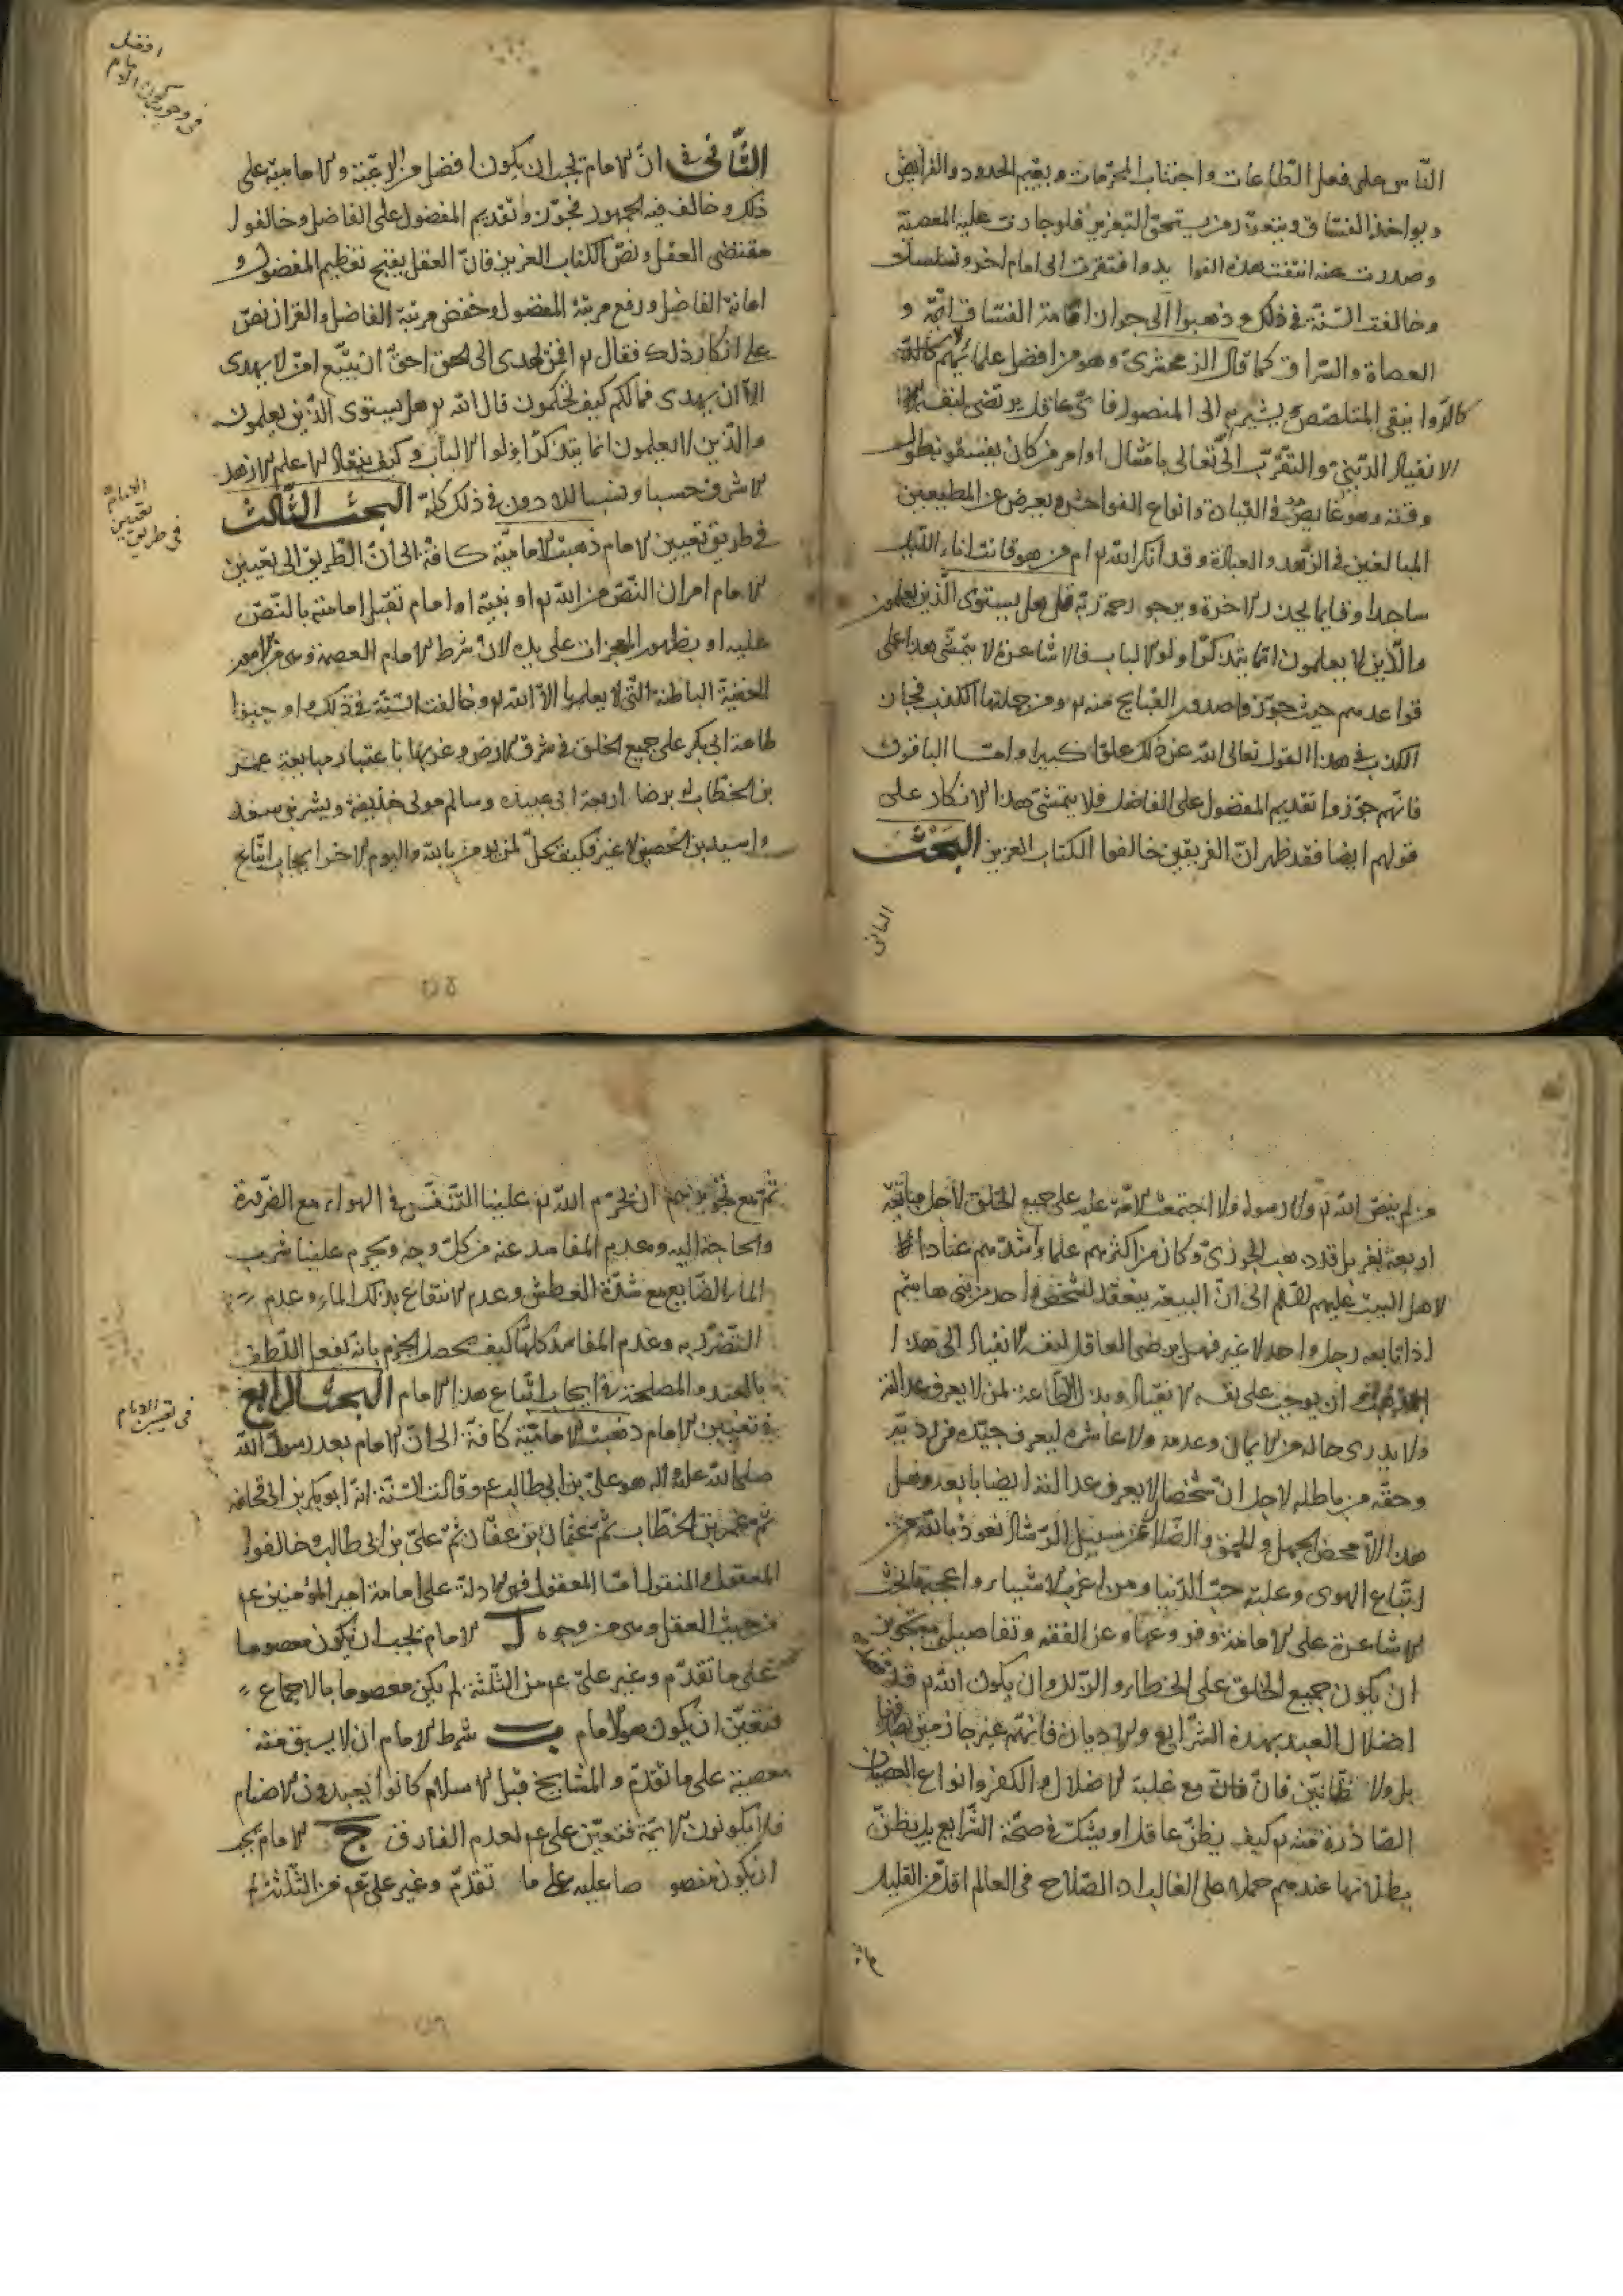 الناس على فعل الطاعات واجتناب المحرمات ويقيم الحدود والفرايض
ويواخذ الفساق ويعزر من يستحق التعزير فلو جازت عليه المعصية
وصدرت عنه انتفت هذه الفوايد وافتقرت الى امام اخر وتسلسل
وخالفت السنة في ذلك وذهبوا الى جواز امامة الفساق ائمة و
العصاة والسراق كما قال الزمخشري وهو من افضل علمائهم
المتلصص يشير به الى المنصور فاي عاقل يرتضى لنفسه
الانقياد الديني والتقرب الى الله تعالى بامتثال اوامر من كان يفسق طول
وقته وهو غايص في القيان وانواع الفواحش ويعرض عن المطيعين
المبالغين في الزهد والعبادة وقد انكر الله تع ام من هو قانت اناء الليل
ساجدا وقايما يحذر الاخرة ويرجو رحمة ربه قل هل يستوى الذين يعلمون
والذين لا يعلمون انما يتذكر اولو الالباب فالاشاعرة لا يتمشى هذا على
قواعدهم حيث جوزوا صدور القبايح منه تع ومن جملتها الكذب فجاز
الكذب في هذا القول تعالى الله عن ذلك علوا كبيرا واما الباقون
فانهم جوزوا تقديم المفضول على الفاضل فلا يتمشى هذا الانكار على
قولهم ايضا فقد ظهر ان الفريقين خالفوا الكتاب العزيز البحث
الثاني
افضل
في وجوب كون الامام
الثاني في ان الامام يجب ان يكون افضل من الرعية والامامية على
ذلك وخالف فيه الجمهور فجوزوا تقديم المفضول على الفاضل وخالفوا
مقتضى العقل ونص الكتاب العزيز فان العقل يقبح تعظيم المفضول و
اهانة الفاضل ورفع مرتبة المفضول وخفض مرتبة الفاضل والقران نص
على انكار ذلك فقال تع افمن يهدى الى الحق احق ان يتبع امن لا يهدى
الا ان يهدى فمالكم كيف تحكمون قال الله تع هل يستوى الذين يعلمون
والذين لا يعلمون انما يتذكر اولوا الالباب وكيف ينقاد الاعلم الازهد
الاشرف حسبا ونسبا للادون في ذلك كله البحث الثالث
الامام
تعيين
في طريق
في طريق تعيين الامام ذهبت الامامية كافة الى ان الطريق الى تعيين
الامام امران النص من الله تع او نبيه او امام تثبت امامته بالنص
عليه او بظهور المعجزات على يده لان شرط الامام العصمة وهي من الامور
الخفية الباطنة التي لا يعلمها الا الله تع وخالفت السنة في ذلك واوجبوا
طاعة ابي بكر على جميع الخلق في شرق الارض وغربها باعتبار مبايعة عمر
بن الخطاب له برضا اربعة ابي عبيده وسالم مولى حذيفة وبشر بن سعد
واسيد بن الحصين لا غير فكيف يحل لمن يومن بالله واليوم الاخر ايجاب اتباع
من لم ينص الله تع ولا رسوله ولا اجتمعت الامة عليه على جميع الخلق لاجل مبايعة
اربعة نفر بل قد ذهب الجوزي وكان من اكثرهم علما واشدهم عنادا
لاهل البيت عليهم السلم الى ان البيعة ينعقد لشخص واحد من بني هاشم
اذا بايعه رجل واحد لا غير فهل يرضى العاقل لنفسه الانقياد الى هذا
المذهب ان يوجب على نفسه الانقياد وبذل الطاعة لمن لا يعرف عدالته
ولا يدري حاله من الايمان وعدمه ولا عاشره ليعرف جيده من رديه
وحقه من باطله لاجل ان شخصا لا يعرف عدالته ايضا بايعه وهل
هذا الا محض الجهل والحمق والضلال عن سبيل الرشاد نعوذ بالله من
اتباع الهوى وغلبة حب الدنيا ومن اغرب الاشياء واعجبها بحث
الاشاعرة على الامامة وفروعها وعن الفقه وتفاصيله مع تجويز
ان يكون جميع الخلق على الخطاء والزلل وان يكون الله تع قصد
اضلال العبيد بهذه الشرايع والاديان فانهم غير جازمين بصدقها
بل ولا ظانين فان فان مع غلبة الاضلال والكفر وانواع العصيان
الصادرة منه تع كيف يظن عاقل او يشك في صحة الشرايع بل يظن
بطلانها عندهم حملا على الغالب اذ الصلاح في العالم اقل من القليل
ثم
ثم مع تجويزهم ان يحرم الله تع علينا التنفس في الهواء مع الضرورة
والحاجة اليه وعدم المفاسد عنه من كل وجه ويحرم علينا شرب
الماء الضايع مع شدة العطش وعدم الانتفاع بذلك الماء وعدم
التضرر به وعدم المفاسد كلها كيف يحصل الجزم بانه يفعل اللطف
بالعبد والمصلحة في ايجاب اتباع هذا الامام البحث الرابع
في تعيين الامام
في تعيين الامام ذهبت الامامية كافة الى ان الامام بعد رسول الله
صلى الله عليه واله هو علي بن ابي طالب ع وقالت السنة انه ابو بكر بن ابي قحافه
ثم عمر بن الخطاب ثم عثمان بن عفان ثم علي بن ابي طالب وخالفوا
المعقول والمنقول اما المعقول فهي الادلة على امامة امير المؤمنين ع
من حيث العقل وهي من وجوه ا الامام يجب ان يكون معصوما
على ما تقدم وغير علي ع من الثلثة لم يكن معصوما بالاجماع
فتعين ان يكون هو الامام ب شرط الامام ان لا يسبق منه
معصية على ما تقدم والمشايخ قبل الاسلام كانوا يعبدون الاصنام
فلا يكونون ائمة فتعين علي ع لعدم الفارق ج الامام يجب
ان يكون منصوصا عليه على ما تقدم وغير علي ع من الثلثة